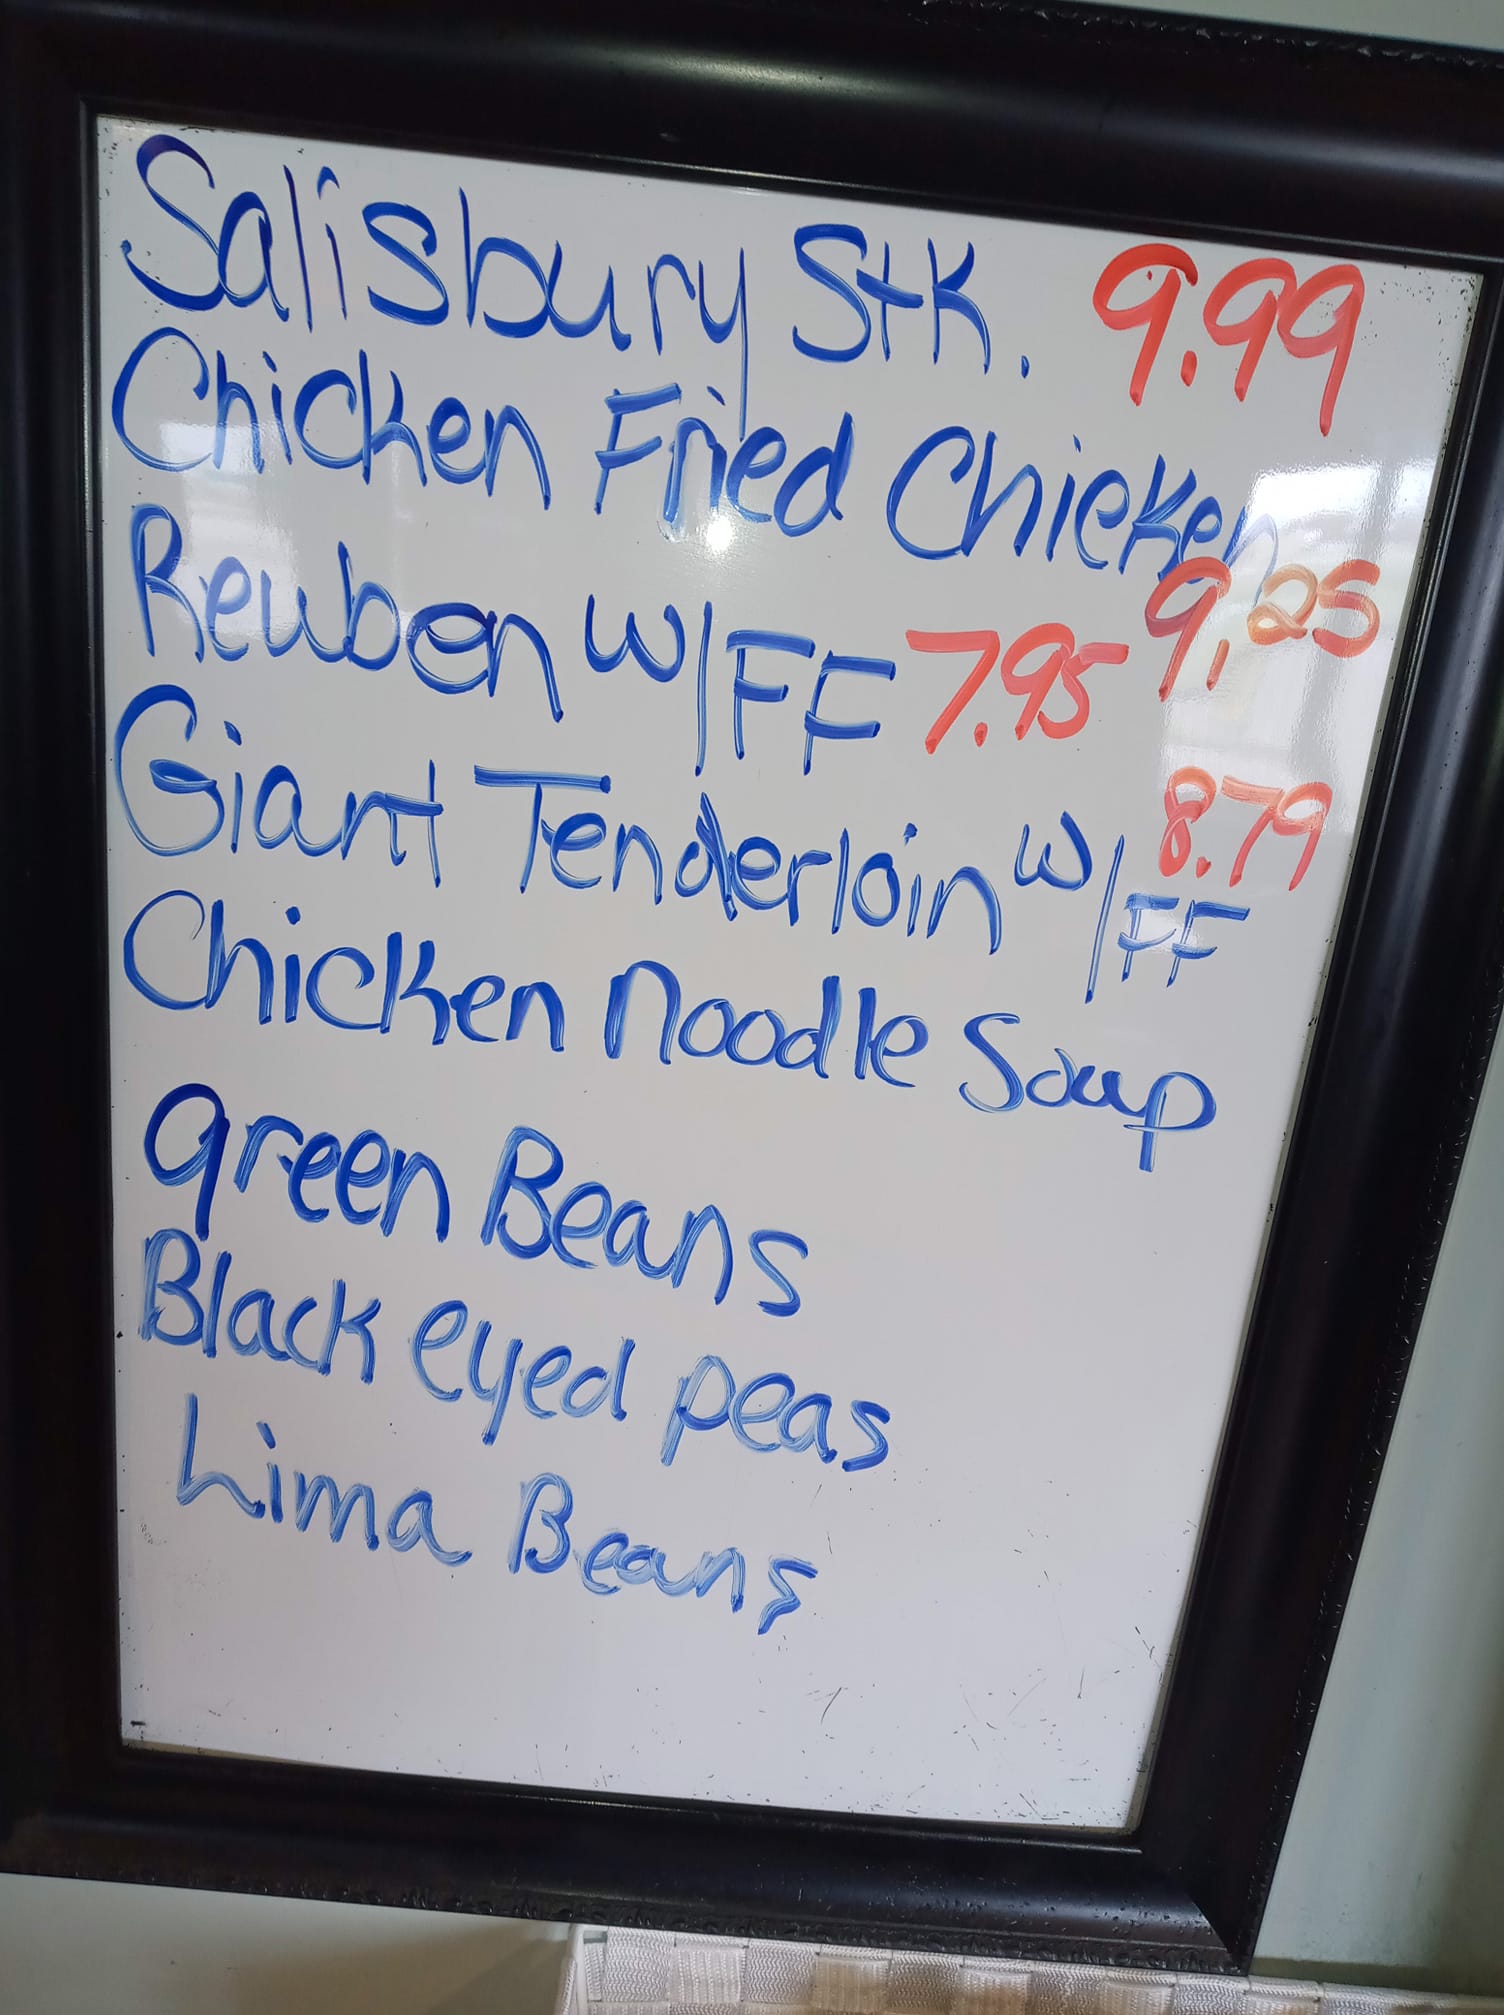 Salisbury Stk. 9.99
Chicken Fried Chicken
9.25
Reuben w/FF 7.95
8.79
Giant Tenderloin w/FF
Chicken noodle Soup
green Beans
Black eyed peas
Lima Beans